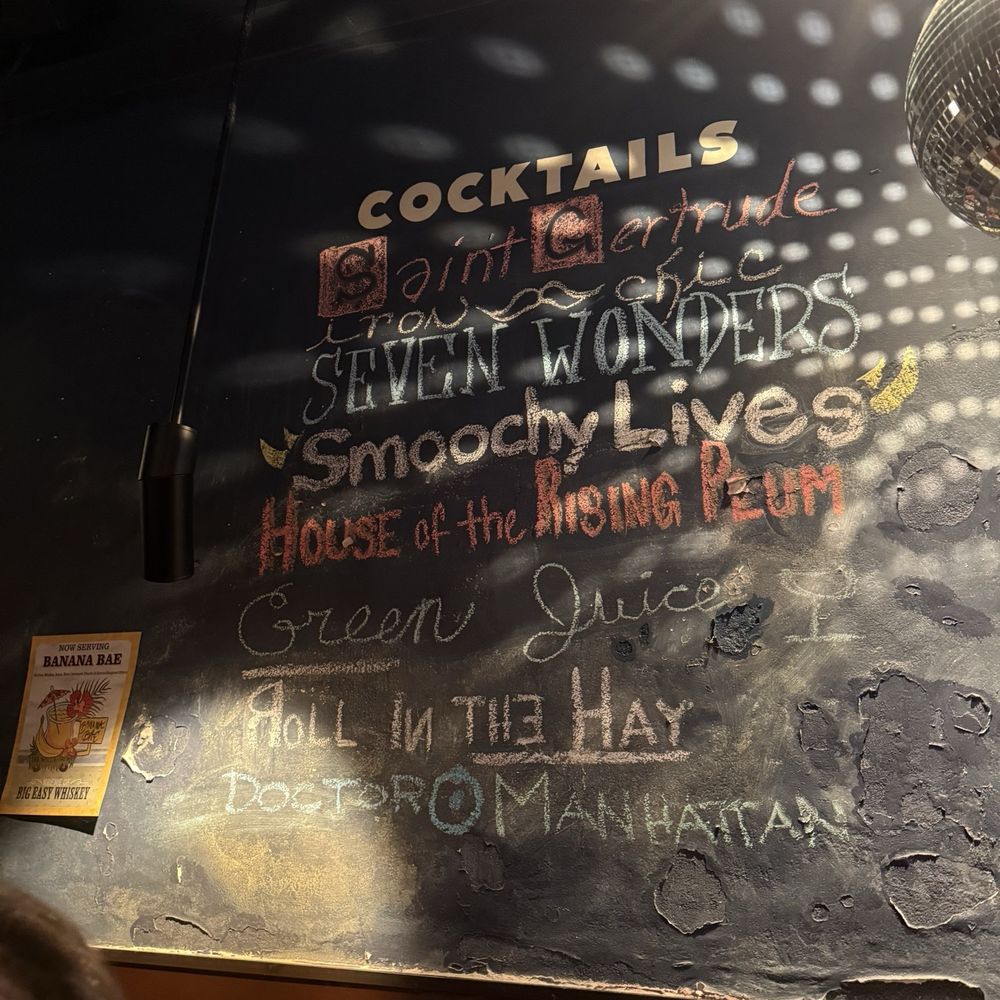 COCKTAILS
Saint Gertrude
iron chic
SEVEN WONDERS
"Smoochy Lives"
HOUSE of the RISING PLUM
Green Juice
ROLL IN THE HAY
DOCTOR MANHATTAN
NOW SERVING
BANANA BAE
BIG EASY WHISKEY